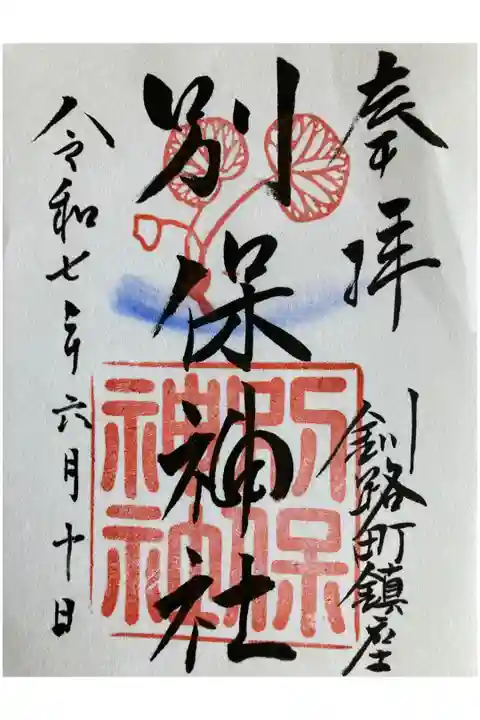 奉拝
釧路町鎮座
別保神社
別保
神社
令和七年六月十日